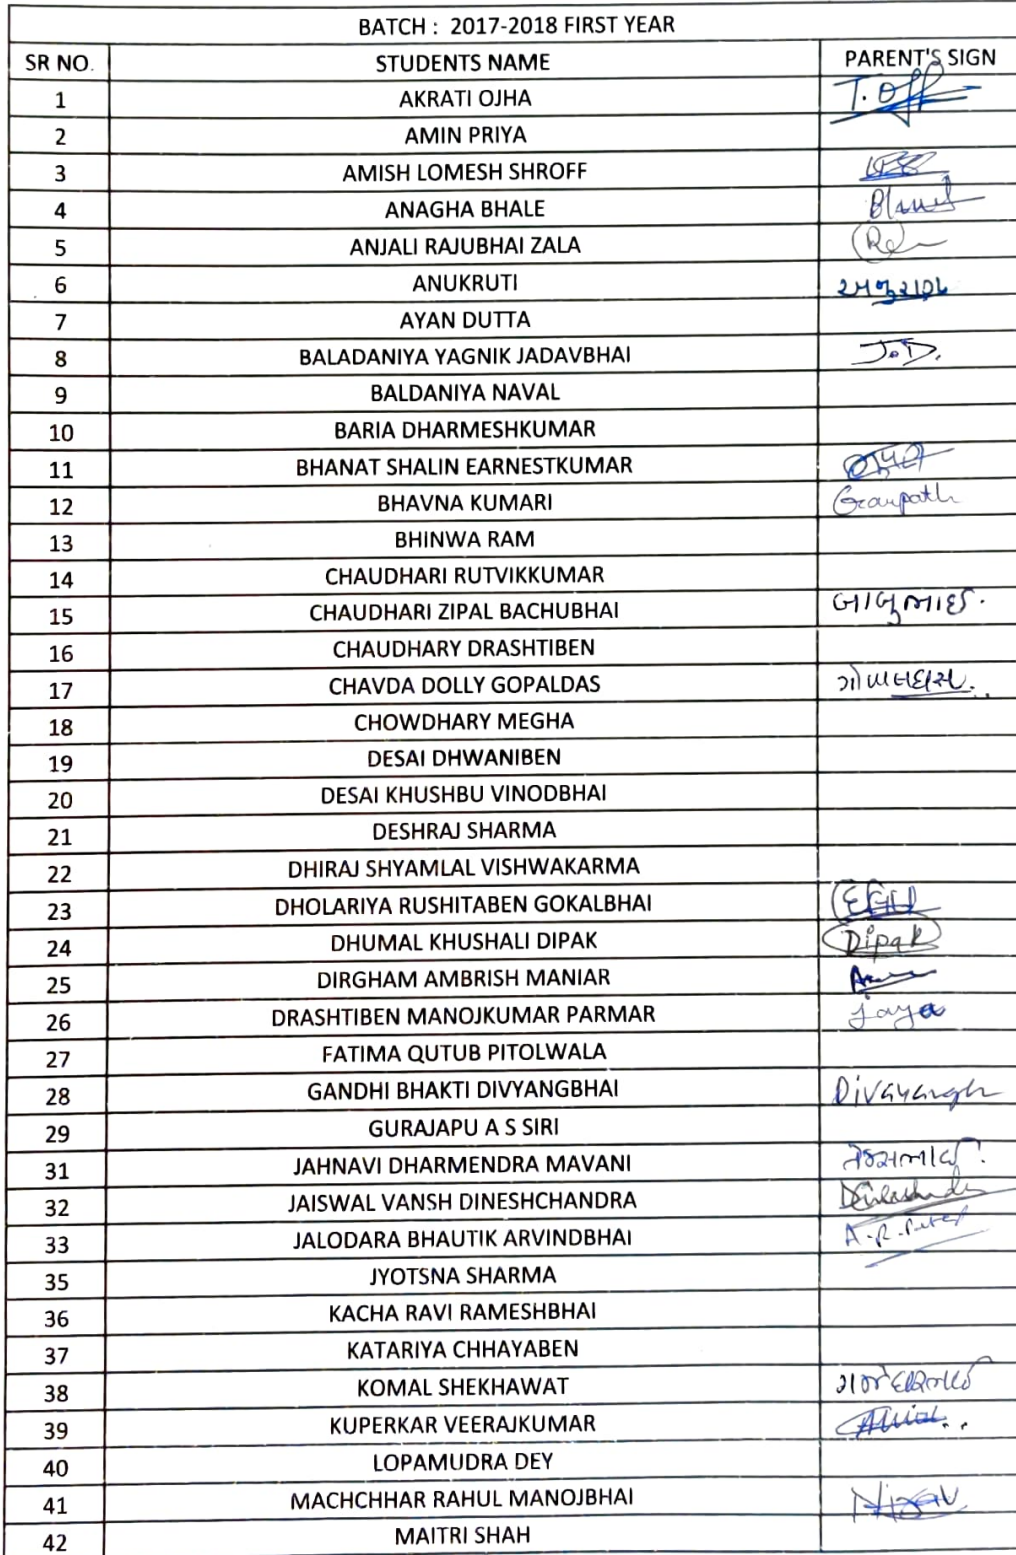 BATCH : 2017-2018 FIRST YEAR
SR NO. STUDENTS NAME PARENT'S SIGN
1 AKRATI OJHA
2 AMIN PRIYA
3 AMISH LOMESH SHROFF
4 ANAGHA BHALE
5 ANJALI RAJUBHAI ZALA
6 ANUKRUTI
7 AYAN DUTTA
8 BALADANIYA YAGNIK JADAVBHAI J.D.
9 BALDANIYA NAVAL
10 BARIA DHARMESHKUMAR
11 BHANAT SHALIN EARNESTKUMAR
12 BHAVNA KUMARI Ganpath
13 BHINWA RAM
14 CHAUDHARI RUTVIKKUMAR
15 CHAUDHARI ZIPAL BACHUBHAI બાબુભાઈ.
16 CHAUDHARY DRASHTIBEN
17 CHAVDA DOLLY GOPALDAS ગોપાલદાસ..
18 CHOWDHARY MEGHA
19 DESAI DHWANIBEN
20 DESAI KHUSHBU VINODBHAI
21 DESHRAJ SHARMA
22 DHIRAJ SHYAMLAL VISHWAKARMA
23 DHOLARIYA RUSHITABEN GOKALBHAI
24 DHUMAL KHUSHALI DIPAK Dipak
25 DIRGHAM AMBRISH MANIAR
26 DRASHTIBEN MANOJKUMAR PARMAR jaya
27 FATIMA QUTUB PITOLWALA
28 GANDHI BHAKTI DIVYANGBHAI
29 GURAJAPU A S SIRI
31 JAHNAVI DHARMENDRA MAVANI
32 JAISWAL VANSH DINESHCHANDRA
33 JALODARA BHAUTIK ARVINDBHAI A.R.Patel
35 JYOTSNA SHARMA
36 KACHA RAVI RAMESHBHAI
37 KATARIYA CHHAYABEN
38 KOMAL SHEKHAWAT
39 KUPERKAR VEERAJKUMAR
40 LOPAMUDRA DEY
41 MACHCHHAR RAHUL MANOJBHAI
42 MAITRI SHAH